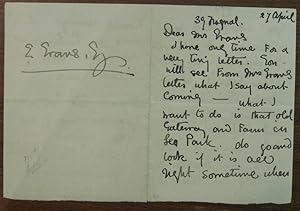 E Evans, Esq.
39 Frognal.
27 April
Dear Mrs Evans
I have only time for a
very tiny letter. You
will see from Mrs Evans
letter what I say about
coming — what I
want to do is that old
Gateway and Farm in
Lea Park. do go and
look if it is all
right sometime when